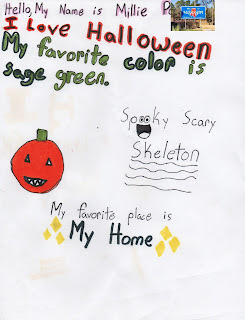 Hello, My Name is Millie P
I Love Halloween
My favorite color is
sage green.
Spooky Scary
Skeleton
My favorite place is
My Home